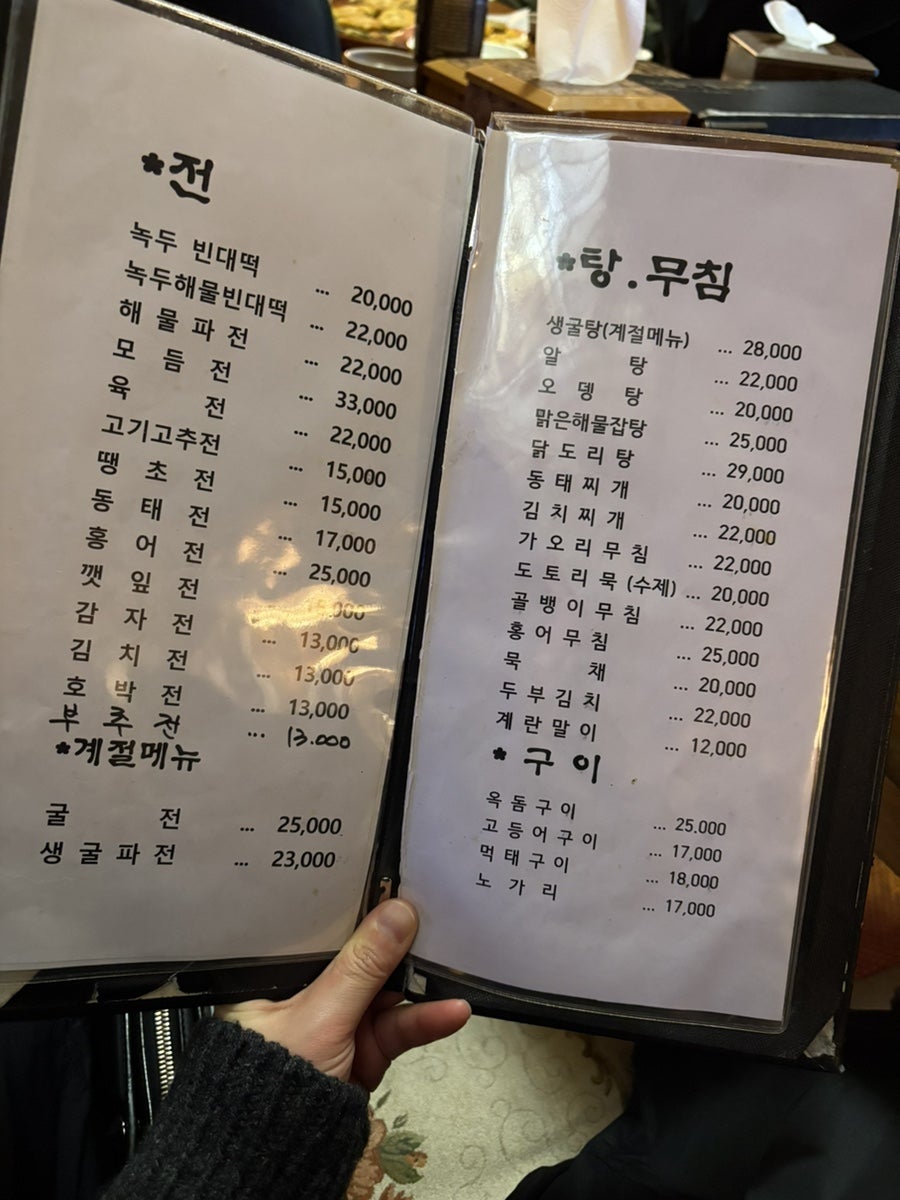 *전
녹두 빈대떡 ... 20,000
녹두해물빈대떡 ... 22,000
해 물 파 전 ... 22,000
모 듬 전 ... 33,000
육 전 ... 22,000
고기고추전 ... 15,000
땡 초 전 ... 15,000
동 태 전 ... 17,000
홍 어 전 ... 25,000
깻 잎 전
감 자 전 ... 13,000
김 치 전 13,000
호 박 전 ... 13,000
부 추 전 ... 13.000
*계절메뉴
굴 전 ... 25,000
생 굴 파 전 ... 23,000
*탕.무침
생굴탕(계절메뉴) ... 28,000
알 탕 ... 22,000
오 뎅 탕 ... 20,000
맑은해물잡탕 ... 25,000
닭 도 리 탕 ... 29,000
동 태 찌 개 ... 20,000
김 치 찌 개 ... 22,000
가 오 리 무 침 ... 22,000
도 토 리 묵 (수제) ... 20,000
골 뱅 이 무 침 ... 22,000
홍 어 무 침 ... 25,000
묵 채 ... 20,000
두 부 김 치 ... 22,000
계 란 말 이 ... 12,000
*구 이
옥 돔 구 이 ... 25.000
고 등 어 구 이 ... 17,000
먹 태 구 이 ... 18,000
노 가 리 ... 17,000